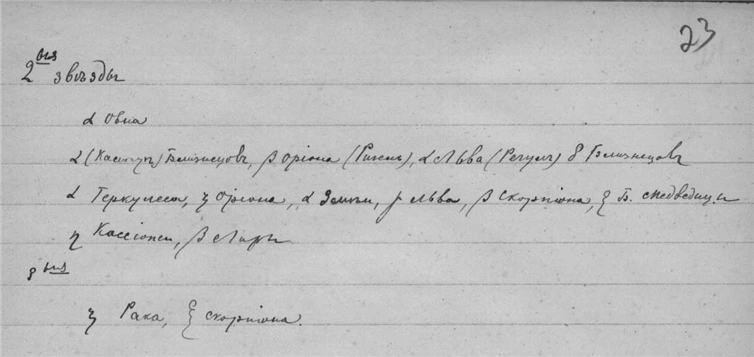 23
2ныя звѣзды
α Овна
α (Касторъ) Близнецовъ, β Оріона (Ригель), α Льва (Регулъ) δ Близнецовъ
α Геркулеса, ζ Оріона, α Змѣи, γ Льва, β Скорпіона, ξ Б. Медведицы
η Кассіопеи, β Лиры
3ныя
ζ Рака, ξ Скорпіона.